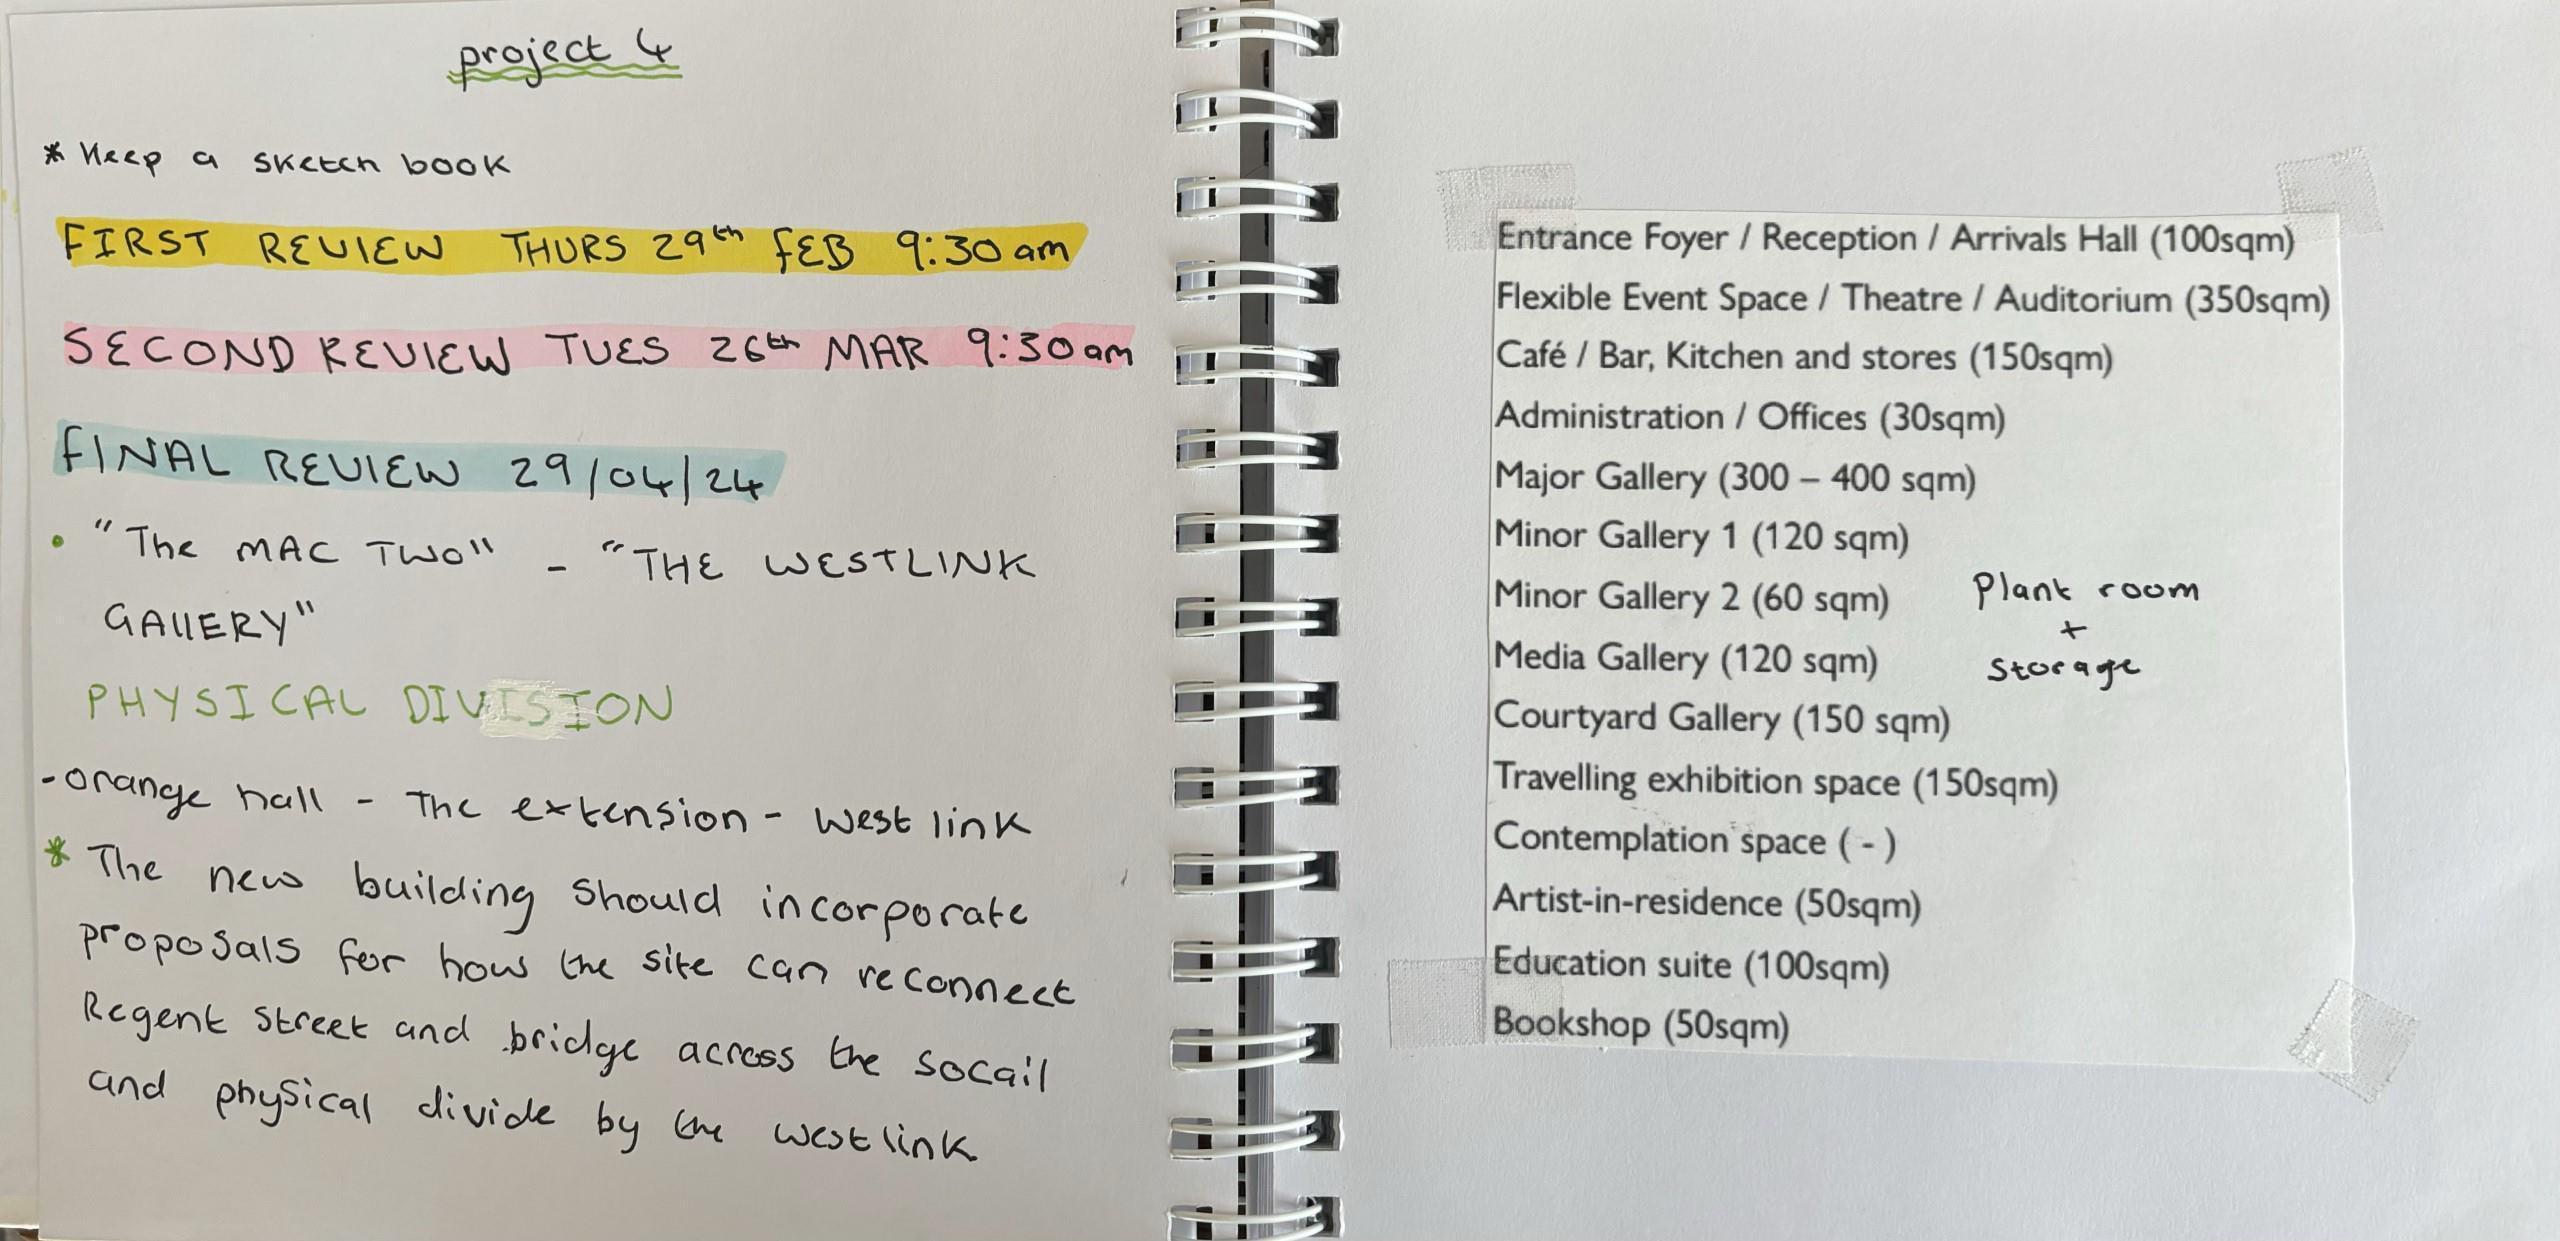 project 4
* Keep a sketch book
FIRST REVIEW THURS 29th FEB 9:30am
SECOND REVIEW TUES 26th MAR 9:30am
FINAL REVIEW 29/04/24
• "The MAC TWO" - "THE WESTLINK
GALLERY"
PHYSICAL DIVISION
- orange hall - The extension - West link
* The new building should incorporate
proposals for how the site can reconnect
Regent street and bridge across the socail
and physical divide by the westlink.
Entrance Foyer / Reception / Arrivals Hall (100sqm)
Flexible Event Space / Theatre / Auditorium (350sqm)
Café / Bar, Kitchen and stores (150sqm)
Administration / Offices (30sqm)
Major Gallery (300 – 400 sqm)
Minor Gallery 1 (120 sqm)
Minor Gallery 2 (60 sqm)
Media Gallery (120 sqm)
Courtyard Gallery (150 sqm)
Travelling exhibition space (150sqm)
Contemplation space ( - )
Artist-in-residence (50sqm)
Education suite (100sqm)
Bookshop (50sqm)
Plant room
+
storage